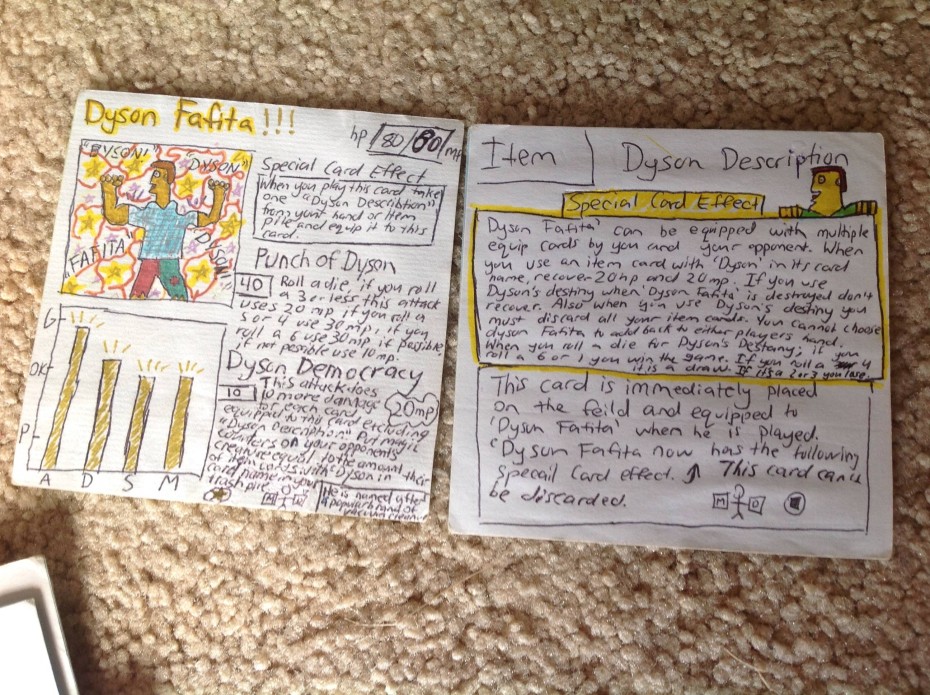 Dyson Fafita!!!
hp 80/80 mp
"DYSON!" "DYSON"
"FAFITA" "DYSON"
Special Card Effect
When you play this card take
one "Dyson Describtion"
from your hand or Item
pile and equip it to this
card.
Punch of Dyson
40 Roll a die, if you roll
a 3 or less this attack
uses 20 mp, if you roll a
5 or 4 use 30 mp, if you
roll a 6 use 30 mp if possible,
if not possible use 10 mp.
Dyson Democracy
10 This attack does
10 more damage
for each card
20mp
equipped to this card excluding
"Dyson Description". Put magic
counters on your opponents
creature equal to the amount
of item cards with "Dyson" in their
card name in your
trash pile.
He is named after
a popular brand of
vacuum cleaner
G
OK
P
A D S M
Item
Dyson Description
Special Card Effect
'Dyson Fafita' can be equipped with multiple
equip cards by you and your opponent. When
you use an item card with 'Dyson' in its card
name, recover 20 hp and 20 mp. If you use
Dyson's destiny when 'Dyson Fafita' is destroyed don't
recover. Also when you use Dyson's destiny you
must discard all your item cards. You cannot choose
dyson Fafita to add back to either players hand.
When you roll a die for Dyson's Destany; if you
roll a 6 or 1 you win the game. If you roll a 4
it is a draw. If its a 2 or 3 you lose.
This card is immediately placed
on the feild and equipped to
'Dyson Fafita' when he is played.
'Dyson Fafita now has the following
Specail Card effect. ↑ This card can't
be discarded.
M O